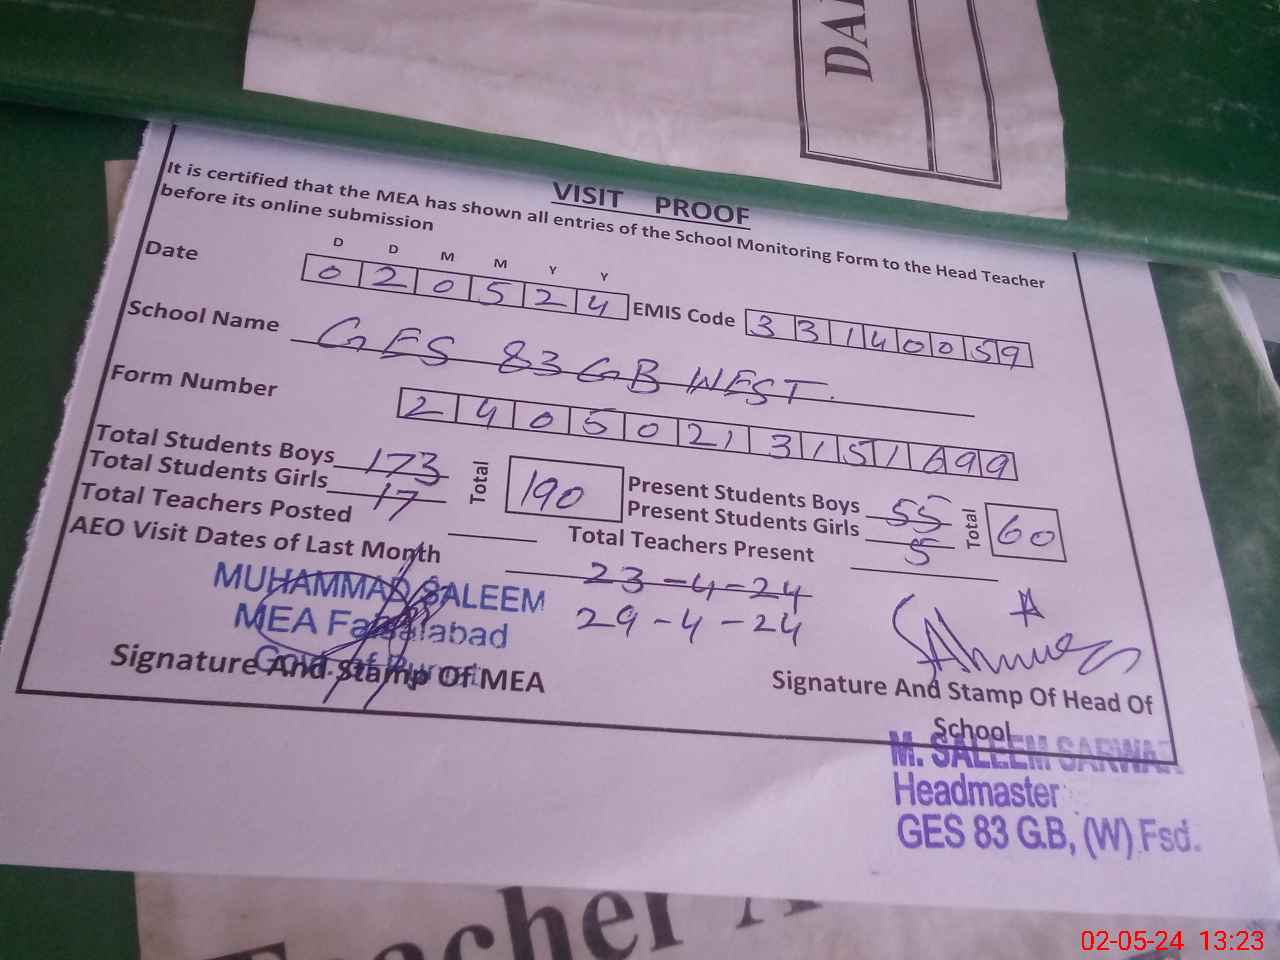 DAI
VISIT PROOF
It is certified that the MEA has shown all entries of the School Monitoring Form to the Head Teacher
before its online submission
D D M M Y Y
Date 0 2 0 5 2 4 EMIS Code 3 3 1 4 0 0 5 9
School Name GES 83 GB WEST.
Form Number 2 4 0 5 0 2 1 3 1 5 1 6 9 9
Total Students Boys 173 Total 190 Present Students Boys 55 Total 60
Total Students Girls 17 Present Students Girls 5
Total Teachers Posted Total Teachers Present
AEO Visit Dates of Last Month 23-4-24
29-4-24
MUHAMMAD SALEEM
MEA Faisalabad
Signature And Stamp Of MEA
Signature And Stamp Of Head Of
School
M. SALEEM SARWAR
Headmaster
GES 83 G.B, (W) Fsd.
Teacher
02-05-24 13:23